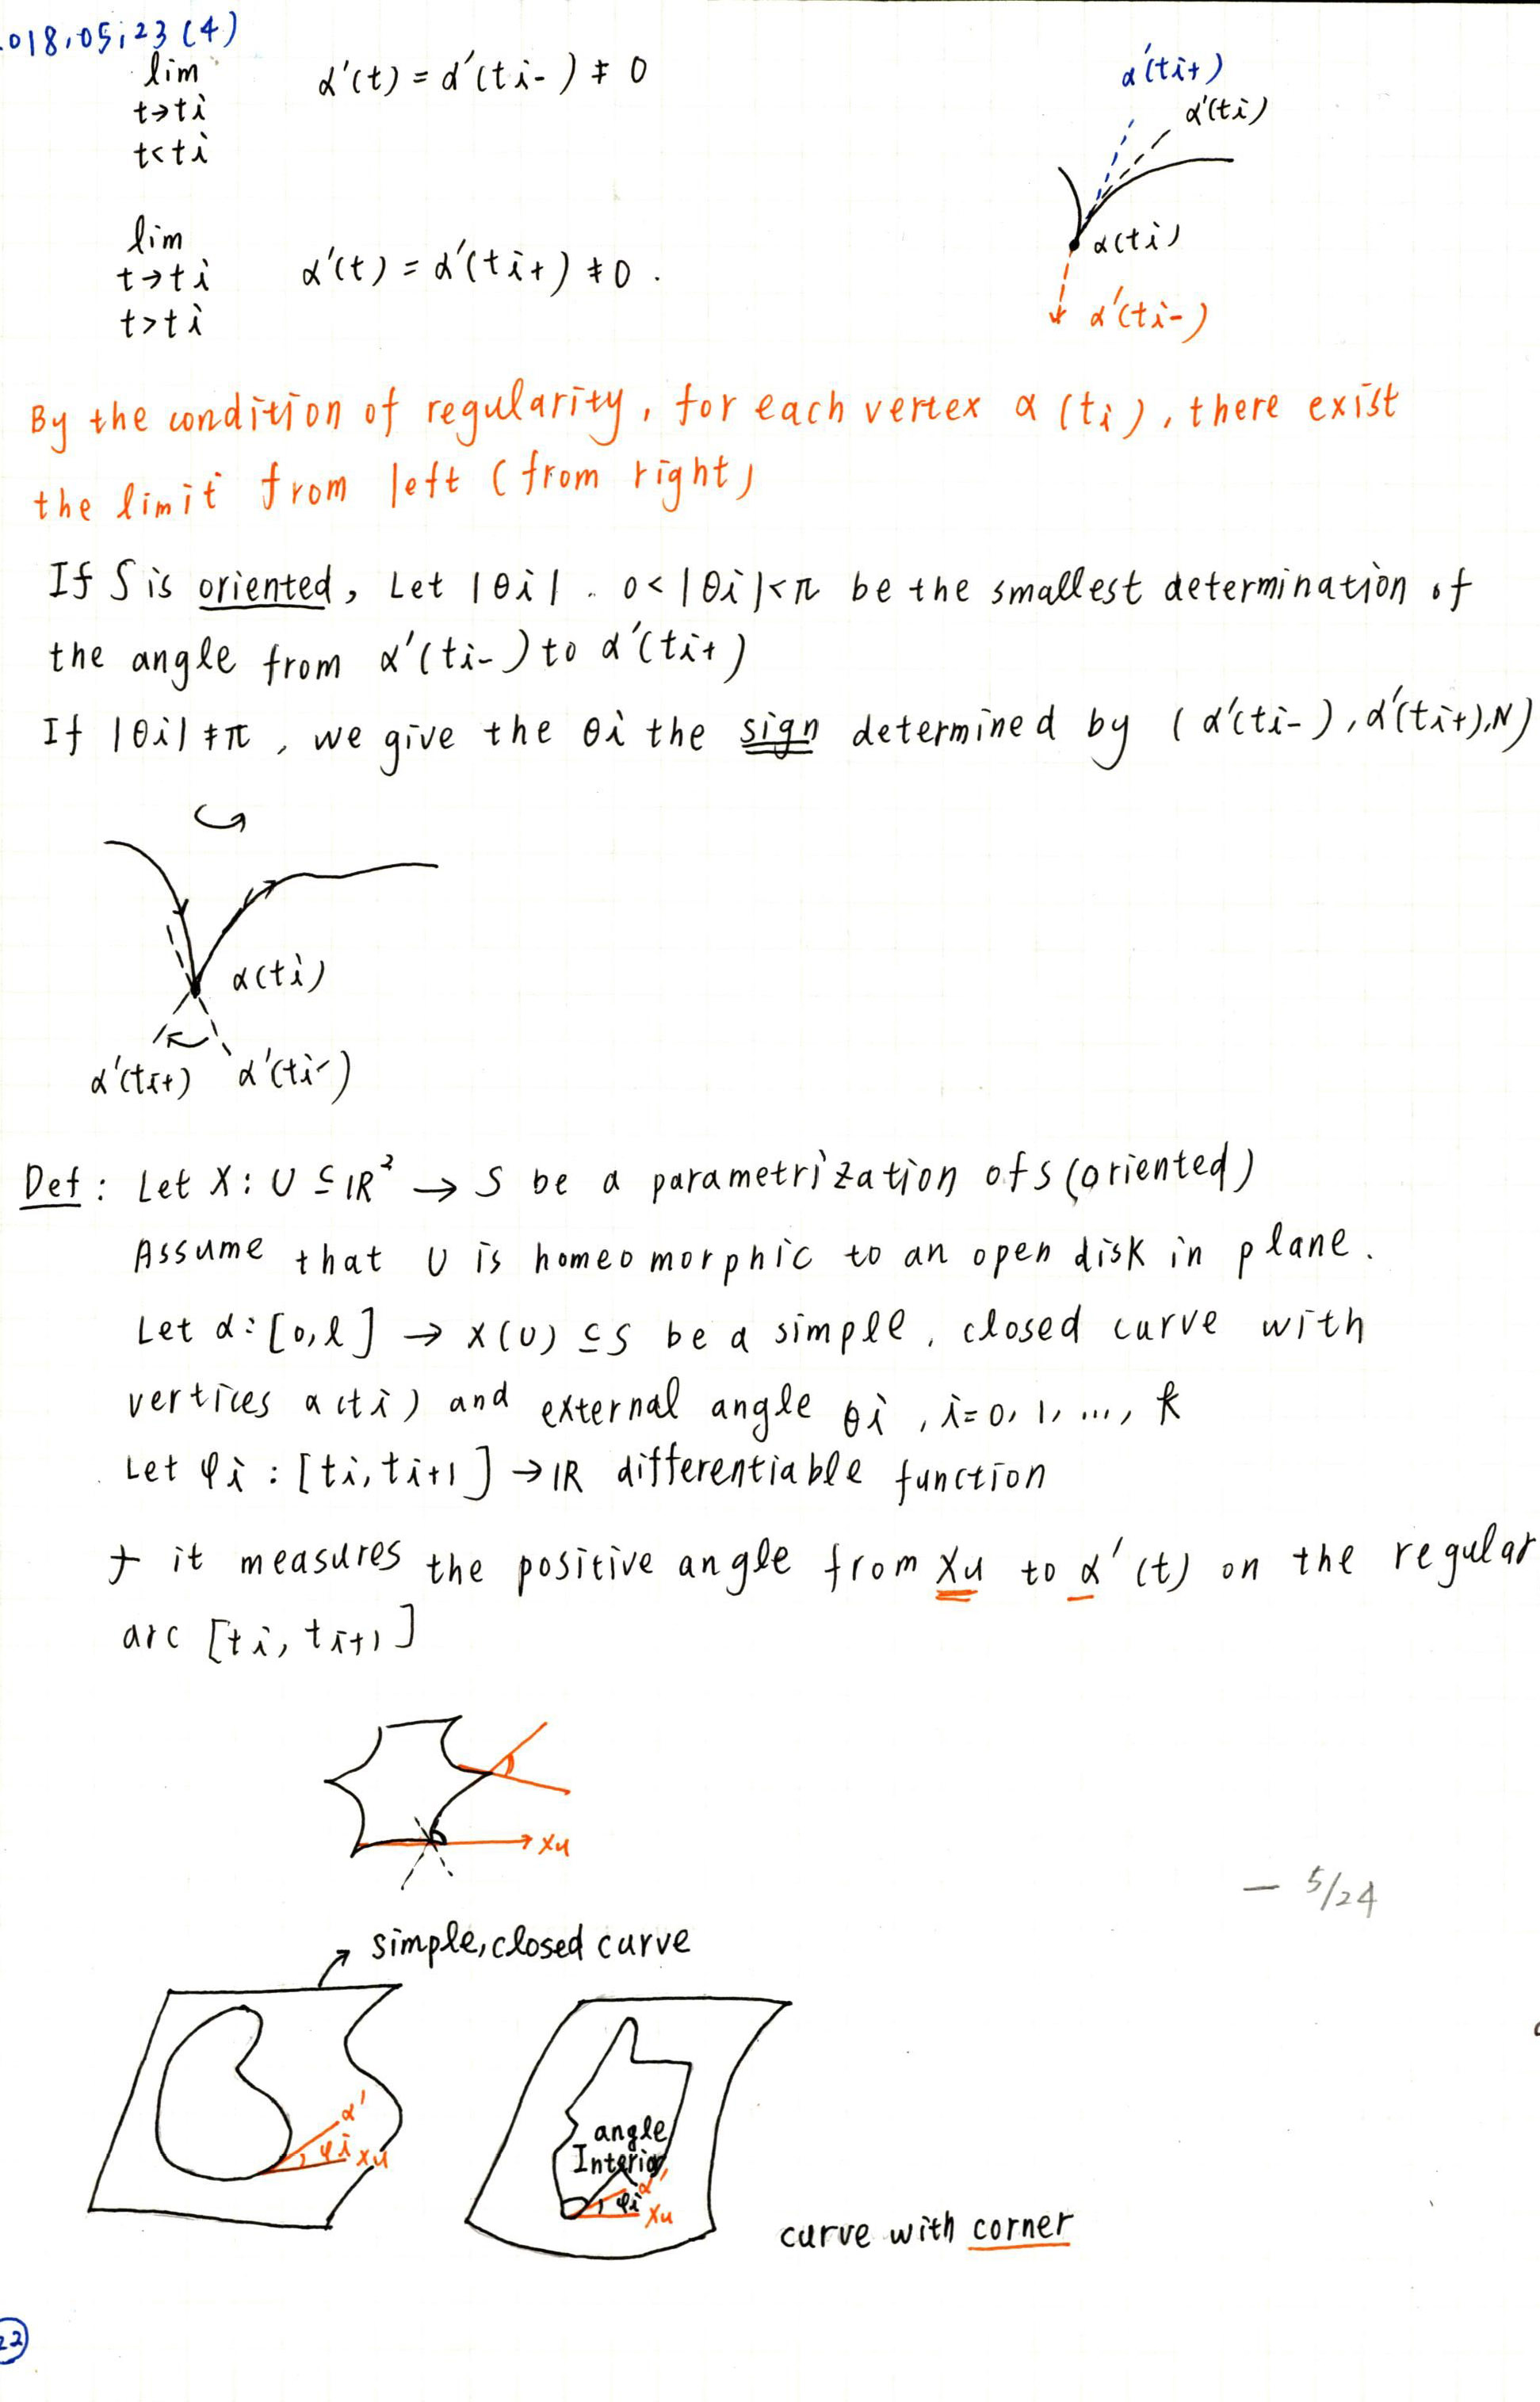 018.05.23 (4)
lim α'(t) = α'(ti-) ≠ 0
t→ti
t<ti
α'(ti+)
α'(ti)
α(ti)
α'(ti-)
lim α'(t) = α'(ti+) ≠ 0 .
t→ti
t>ti
By the condition of regularity, for each vertex α(ti), there exist
the limit from left (from right)
If S is oriented, Let |θi| . 0<|θi|<π be the smallest determination of
the angle from α'(ti-) to α'(ti+)
If |θi| ≠ π, we give the θi the sign determined by (α'(ti-), α'(ti+), N)
α(ti)
α'(ti+) α'(ti-)
Def: Let X: U ⊆ ℝ² → S be a parametrization of s (oriented)
Assume that U is homeomorphic to an open disk in plane.
Let α: [0,ℓ] → X(U) ⊆ S be a simple, closed curve with
vertices α(ti) and external angle θi, i=0, 1, ..., k
Let φi : [ti, ti+1] → ℝ differentiable function
+ it measures the positive angle from Xu to α'(t) on the regular
arc [ti, ti+1]
Xu
— 5/24
simple, closed curve
α'
φi Xu
angle
Interior
α'
φi
Xu
curve with corner
22